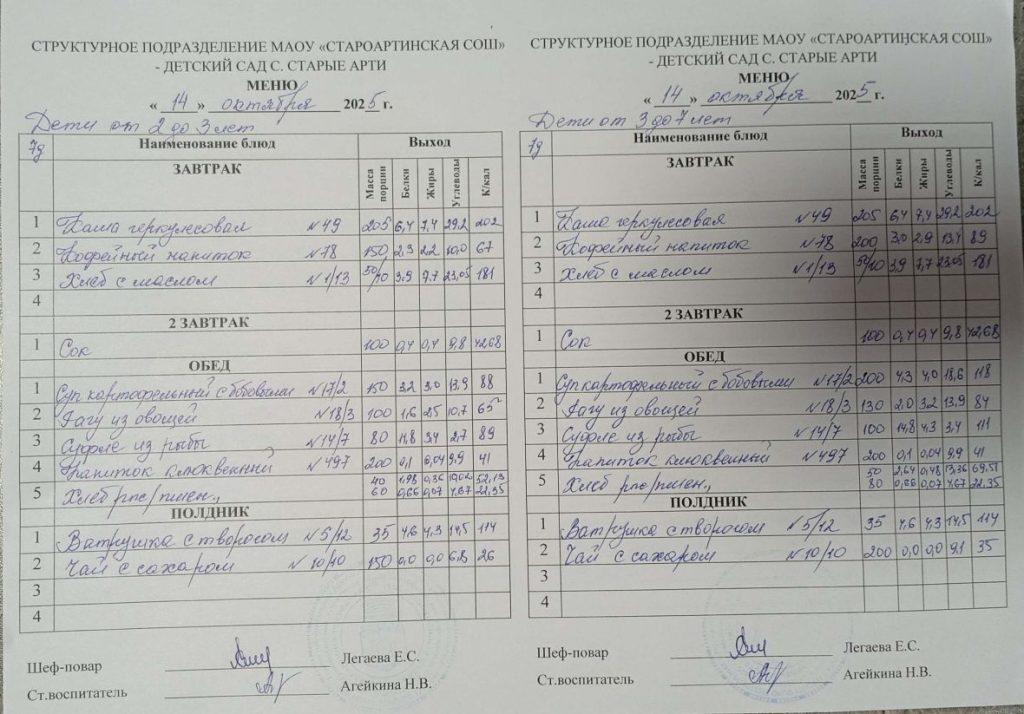 СТРУКТУРНОЕ ПОДРАЗДЕЛЕНИЕ МАОУ «СТАРОАРТИНСКАЯ СОШ»
- ДЕТСКИЙ САД С. СТАРЫЕ АРТИ
МЕНЮ
« 14 » октября 2025 г.
Дети от 2 до 3 лет
7д Наименование блюд Выход
ЗАВТРАК Масса порции Белки Жиры Углеводы К/кал
1 Каша геркулесовая №49 205 6,4 7,4 29,2 202
2 Кофейный напиток №78 150 2,3 2,2 10,0 67
3 Хлеб с маслом №1/13 50/10 3,9 7,7 23,05 181
4
2 ЗАВТРАК
1 Сок 100 0,4 0,4 9,8 42,68
ОБЕД
1 Суп картофельный с бобовыми №17/2 150 3,2 3,0 13,9 88
2 Рагу из овощей №18/3 100 1,6 2,5 10,7 65
3 Суфле из рыбы №14/7 80 11,8 3,4 2,7 89
4 Напиток клюквенный №497 200 0,1 0,04 9,9 41
5 Хлеб рж/пшен., 40 1,98 0,36 52,13
60 0,66 0,07 4,67 22,35
ПОЛДНИК
1 Ватрушка с творогом №5/12 35 4,6 4,3 14,5 114
2 Чай с сахаром №10/10 150 0,0 0,0 6,8 26
3
4
Шеф-повар Легаева Е.С.
Ст.воспитатель Агейкина Н.В.
СТРУКТУРНОЕ ПОДРАЗДЕЛЕНИЕ МАОУ «СТАРОАРТИНСКАЯ СОШ»
- ДЕТСКИЙ САД С. СТАРЫЕ АРТИ
МЕНЮ
« 14 » октября 2025 г.
Дети от 3 до 7 лет
7д Наименование блюд Выход
ЗАВТРАК Масса порции Белки Жиры Углеводы К/кал
1 Каша геркулесовая №49 205 6,4 7,4 29,2 202
2 Кофейный напиток №78 200 3,0 2,9 13,4 89
3 Хлеб с маслом №1/13 50/10 3,9 7,7 23,05 181
4
2 ЗАВТРАК
1 Сок 100 0,4 0,4 9,8 42,68
ОБЕД
1 Суп картофельный с бобовыми №17/2 200 4,3 4,0 18,6 118
2 Рагу из овощей №18/3 130 2,0 3,2 13,9 84
3 Суфле из рыбы №14/7 100 14,8 4,3 3,4 111
4 Напиток клюквенный №497 200 0,1 0,04 9,9 41
5 Хлеб рж/пшен., 50 2,64 0,48 13,36 69,51
80 0,66 0,07 4,67 22,35
ПОЛДНИК
1 Ватрушка с творогом №5/12 35 4,6 4,3 14,5 114
2 Чай с сахаром №10/10 200 0,0 0,0 9,1 35
3
4
Шеф-повар Легаева Е.С.
Ст.воспитатель Агейкина Н.В.